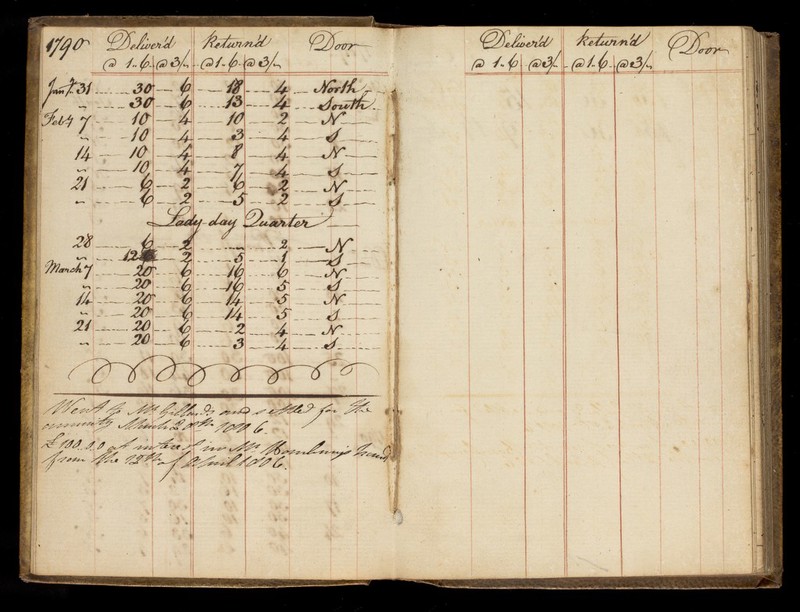 1790 Deliver'd Return'd Door
@ 1..6 @ 3/- @ 1..6 @ 3/-
Jany. 31 30 6 18 4 North
" 30 6 13 4 South
Feby 7 10 4 10 2 N
" 10 4 3 4 S
14 10 4 8 4 N
" 10 4 7 4 S
21 6 2 6 2 N
" 6 2 5 2 S
Lady-day Quarter
28 6 2 " 2 N
" 12 2 5 1 S
March 7 20 6 16 6 N
" 20 6 16 5 S
14 20 6 14 5 N
" 20 6 14 5 S
21 20 6 2 4 N
" 20 6 3 4 S
Went to Mr and settled for the
March
£100.0.0 at Interest in Mr hand
from the 12th of April 1806
Deliver'd Return'd Door
@ 1..6 @ 3/- @ 1..6 @ 3/-